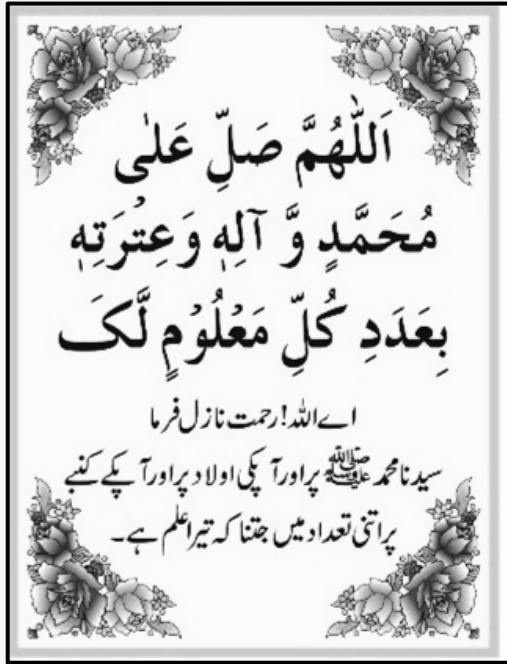 اَللّٰهُمَّ صَلِّ عَلٰی
مُحَمَّدٍ وَّ آلِهٖ وَعِتْرَتِهٖ
بِعَدَدِ كُلِّ مَعْلُوْمٍ لَّکَ
اے اللہ! رحمت نازل فرما
سیدنا محمد ﷺ پر اور آپکی اولاد پر اور آپکے کنبے
پر اتنی تعداد میں جتنا کہ تیرا علم ہے۔